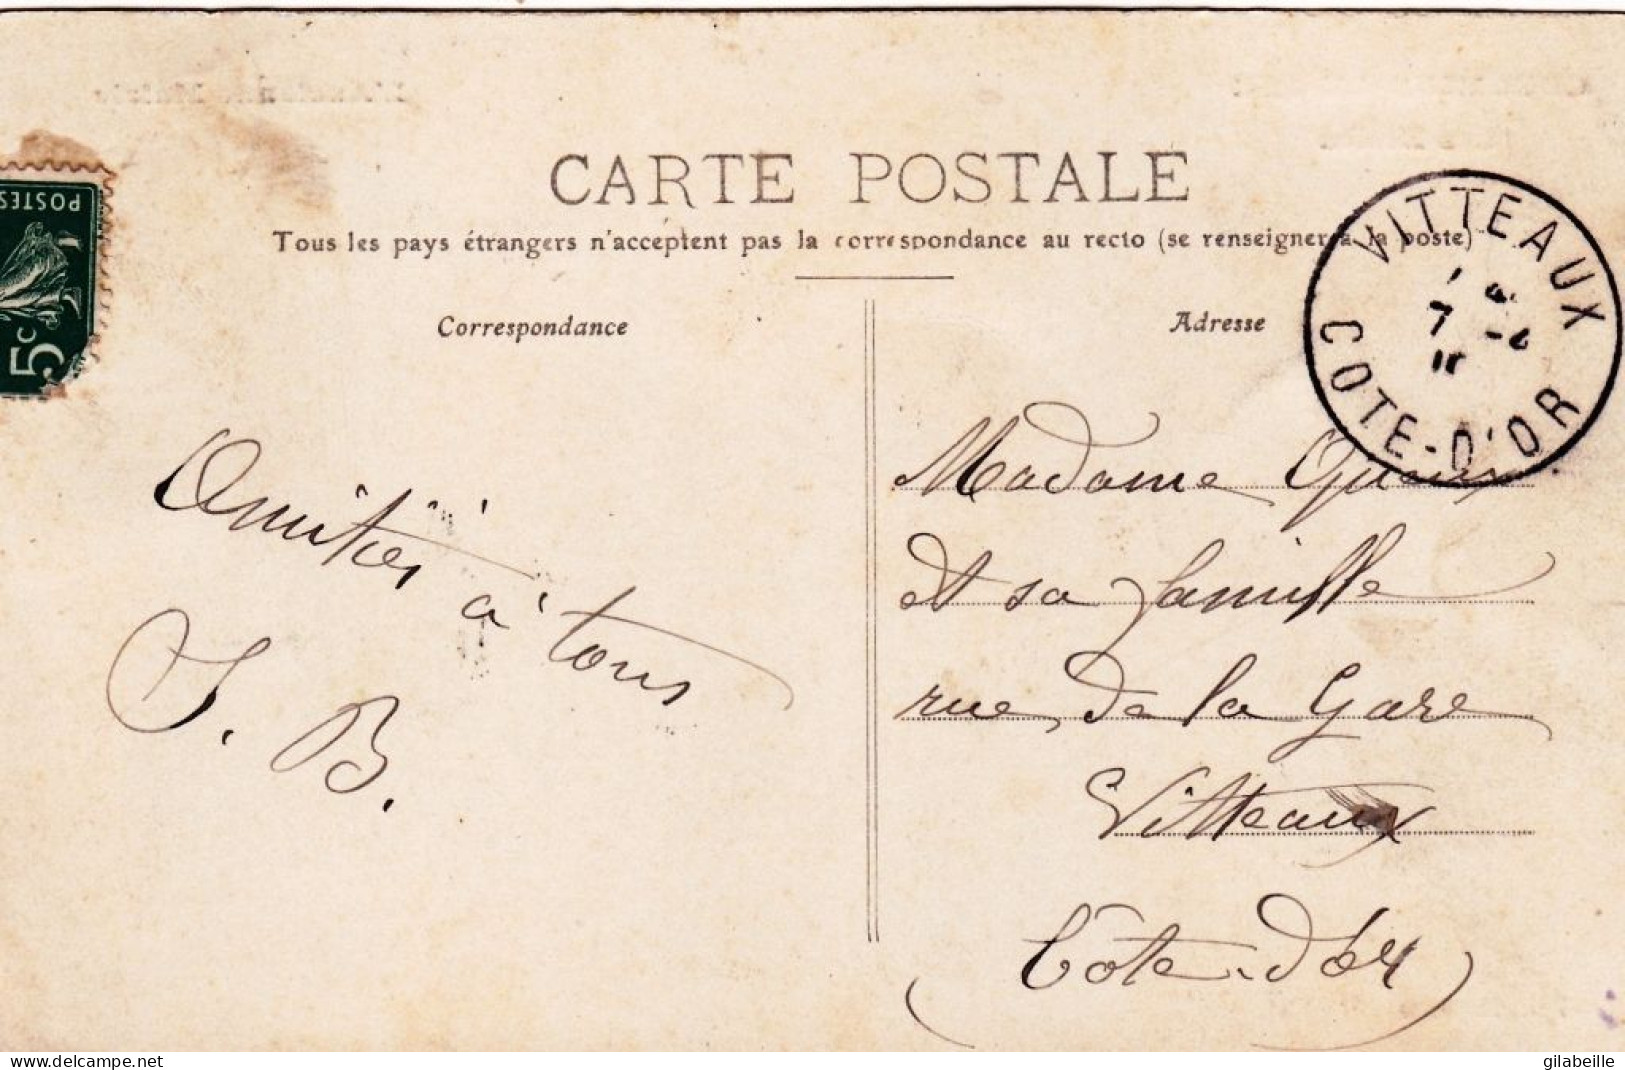 CARTE POSTALE
Tous les pays étrangers n'acceptent pas la correspondance au recto (se renseigner à la poste)
Correspondance
Adresse
POSTES
5c
VITTEAUX
7
COTE-D'OR
Amitiés à tous
J. B.
Madame
et sa famille
rue de la Gare
Vitteaux
(Côte-d'or)
www.delcampe.net
gilabeille